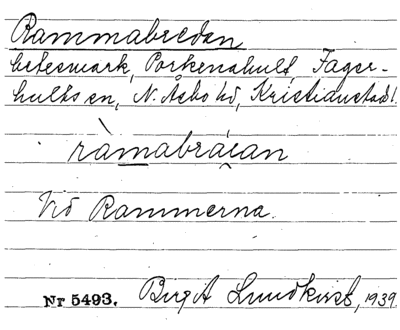 Rammabredan
betesmark, Porkenahult, Fager-
hults sn, N. Åsbo hd, Kristianstads l.
ràmabráean
Vid Rammerna.
Nr 5493. Birgit Lundkvist, 1939.